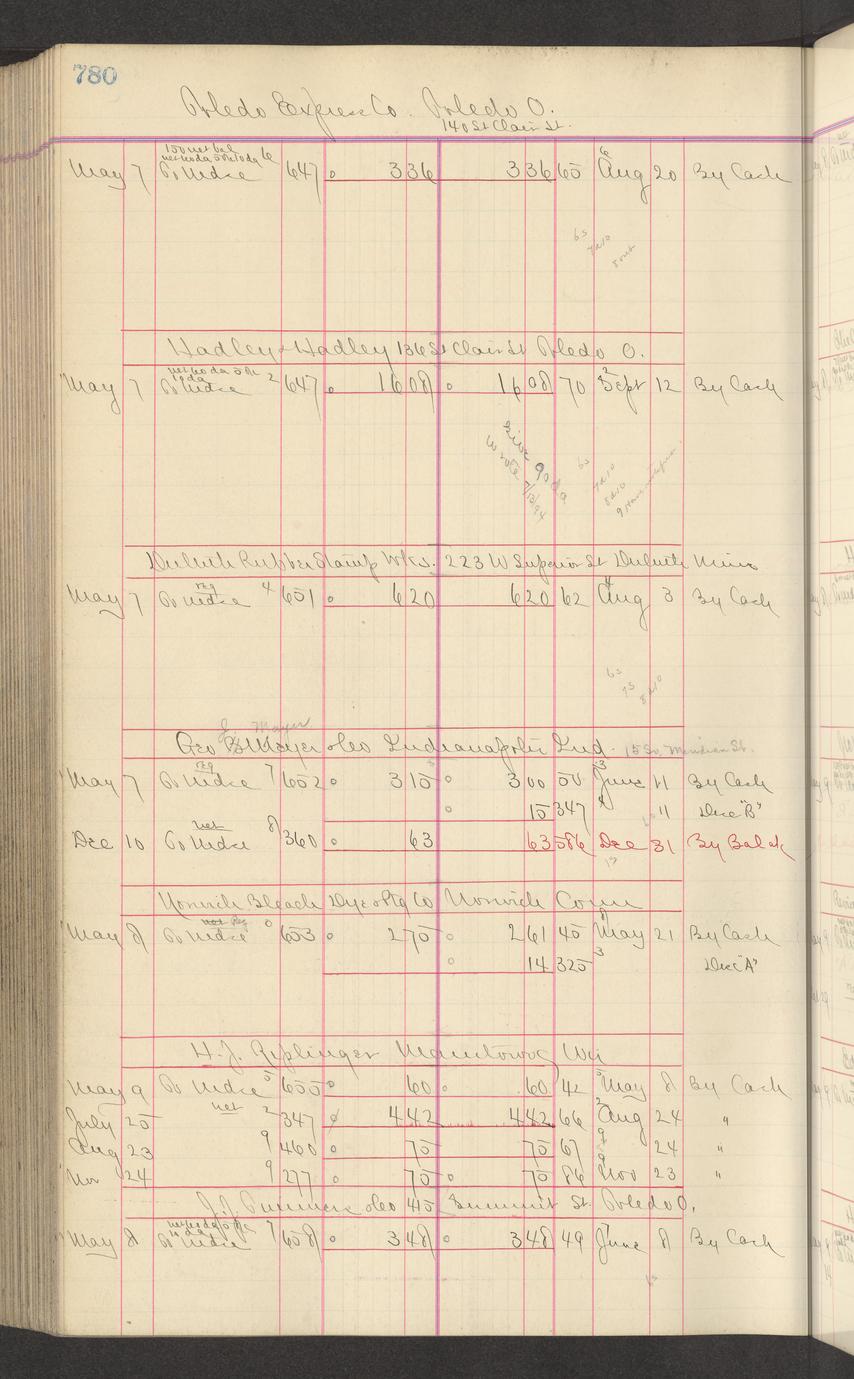 780
Toledo Express Co. Toledo O.
140 St Clair St.
150 net bal
net 60 da 5% 10 da 6
May 7 To Mdse 647 336 336 65 Aug 20 By Cash
Hadley & Hadley 136 St Clair St Toledo O.
net 60 da 5%
10 da
May 7 To Mdse 2 647 1608 1608 70 Sept 12 By Cash
Duluth Rubber Stamp Wks. 223 W Superior St Duluth Minn
reg
May 7 To Mdse 4 651 620 620 62 Aug 3 By Cash
J. Mayer
Geo Mayer & Co Indianapolis Ind. 15 So. Meridian St.
reg
May 7 To Mdse 7 652 315 300 50 June 11 By Cash
15 347 " Disc "B"
net
Dec 10 To Mdse 8 360 63 63 586 Dec 31 By Bal
Norwich Bleach Dye & Ptg Co Norwich Conn
net Reg
May 8 To Mdse 0 653 275 261 45 May 21 By Cash
14 325 Disc "A"
H. J. Riplinger Manitowoc Wis
May 9 To Mdse 5 655 60 60 42 May 8 By Cash
July 25 net 2 347 442 442 66 Aug 24 "
Aug 23 9 460 75 75 67 24 "
Nov 24 9 277 75 75 86 Nov 23 "
& Co 415 Summit St. Toledo O.
net 60 da 5%
10 da
May 8 To Mdse 7 658 348 348 49 June 8 By Cash